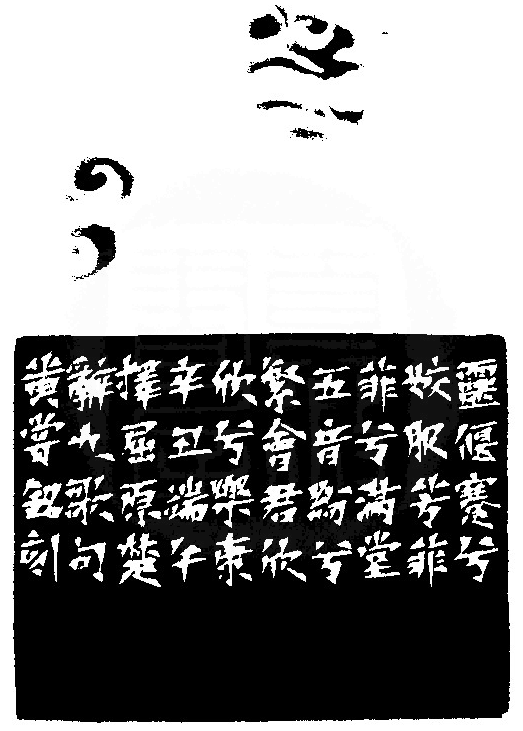 靈偃蹇兮
姣服芳菲
菲兮滿堂
五音紛兮
繁會君欣
欣兮樂康
辛丑端午
擇屈原楚
辭九歌句
黄嘗銘刻